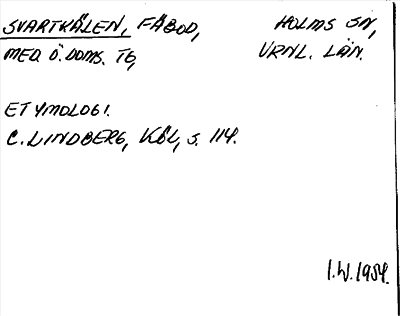 SVARTKÅLEN, FÄBOD, HOLMS SN,
MED. Ö. DOMS. TG, VRNL. LÄN.
ETYMOLOGI.
C. LINDBERG, KÖL, s. 114.
I.W. 1954.